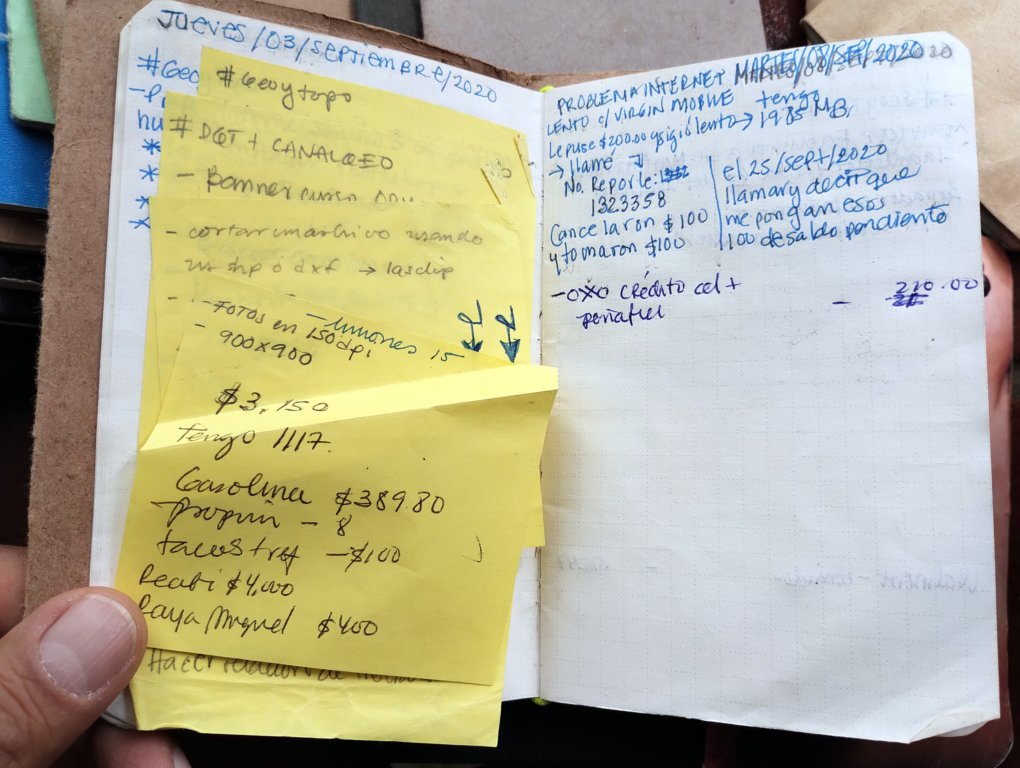 JUEVES/03/SEPTIEMBRE/2020
#Geo
hu
*
*
*
*
#Geoytopo
# DQT + CANALGEO
- Banner curso
- cortar un archivo usando
un shp ó dxf → lasclip
- FOTOS en 150dpi
- limones 15
- 900x900
$3,150
Tengo 1117.
Gasolina $389.80
propin - 8
tacos tref - $100
Recibi $4,000
Raya Miguel $400
Hacer
PROBLEMA INTERNET MARTES/08/SEP/2020
LENTO c/ VIRGIN MOBILE tengo
Le puse $200.00 y sigió lento → 1985 MB,
→ llamé
No. Reporte:
1323358
Cancelaron $100
y tomaron $100
el 25/sept/2020
llamar y decir que
me pongan esos
100 de saldo pendiente
- OXXO crédito cel +
peñafiel - 210.00